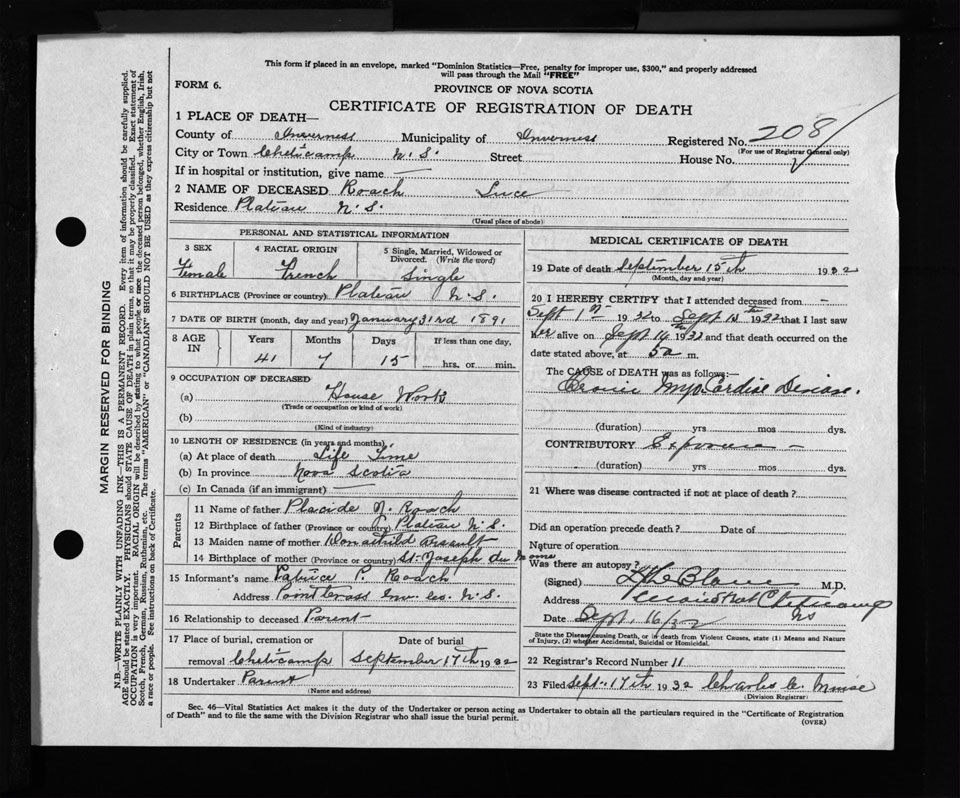 This form if placed in an envelope, marked "Dominion Statistics—Free, penalty for improper use, $300," and properly addressed
will pass through the Mail "FREE"
FORM 6.
PROVINCE OF NOVA SCOTIA
CERTIFICATE OF REGISTRATION OF DEATH
1 PLACE OF DEATH—
County of Inverness Municipality of Inverness Registered No. 208
(For use of Registrar General only)
City or Town Cheticamp N.S. Street House No.
If in hospital or institution, give name —
2 NAME OF DECEASED Roach Luce
Residence Plateau N.S.
(Usual place of abode)
PERSONAL AND STATISTICAL INFORMATION
3 SEX
Female
4 RACIAL ORIGIN
French
5 Single, Married, Widowed or Divorced. (Write the word)
Single
6 BIRTHPLACE (Province or country) Plateau N.S.
7 DATE OF BIRTH (month, day and year) January 31rd 1891
8 AGE IN
Years Months Days If less than one day,
41 7 15 hrs. or min.
9 OCCUPATION OF DECEASED
(a) House Work
(Trade or occupation or kind of work)
(b)
(Kind of industry)
10 LENGTH OF RESIDENCE (in years and months)
(a) At place of death Life Time
(b) In province Nova Scotia
(c) In Canada (if an immigrant) —
Parents
11 Name of father Placide N. Roach
12 Birthplace of father (Province or country) Plateau N.S.
13 Maiden name of mother Arsault
14 Birthplace of mother (Province or country) St. Joseph du Moine
15 Informant's name Patrice P. Roach
Address Point Cross Inv. Co. N.S.
16 Relationship to deceased Parent
17 Place of burial, cremation or
removal Cheticamp
Date of burial
September 17th 1932
18 Undertaker Parent
(Name and address)
MEDICAL CERTIFICATE OF DEATH
19 Date of death September 15th 1932
(Month, day and year)
20 I HEREBY CERTIFY that I attended deceased from —
Sept 1st 1932 to Sept 14th 1932 that I last saw
her alive on Sept 14th 1932 and that death occurred on the
date stated above, at 5 a m.
The CAUSE of DEATH was as follows:—
Cronic Myo Cardial Disease.
(duration) yrs mos dys.
CONTRIBUTORY Exposure —
(duration) yrs mos dys.
21 Where was disease contracted if not at place of death?
Did an operation precede death? Date of
Nature of operation
Was there an autopsy?
(Signed) LeBlanc M.D.
Address Cheticamp
Date Sept. 16/32 NS
State the Disease causing Death, or in death from Violent Causes, state (1) Means and Nature
of Injury. (2) whether Accidental, Suicidal or Homicidal.
22 Registrar's Record Number 11
23 Filed Sept. 17th 1932 Charles C. Muise
(Division Registrar)
Sec. 46—Vital Statistics Act makes it the duty of the Undertaker or person acting as Undertaker to obtain all the particulars required in the "Certificate of Registration
of Death" and to file the same with the Division Registrar who shall issue the burial permit.
(OVER)
MARGIN RESERVED FOR BINDING
N.B.—WRITE PLAINLY WITH UNFADING INK—THIS IS A PERMANENT RECORD. Every item of information should be carefully supplied.
AGE should be stated EXACTLY. PHYSICIANS should STATE CAUSE OF DEATH in plain terms, so that it may be properly classified. Exact statement of
OCCUPATION is very important. RACIAL ORIGIN will be described by stating to what people or race the deceased person belonged, whether English, Irish,
Scotch, French, German, Russian, Ruthenian, etc. The terms "AMERICAN" or "CANADIAN" SHOULD NOT BE USED as they express citizenship but not
a race or people. See instructions on back of Certificate.